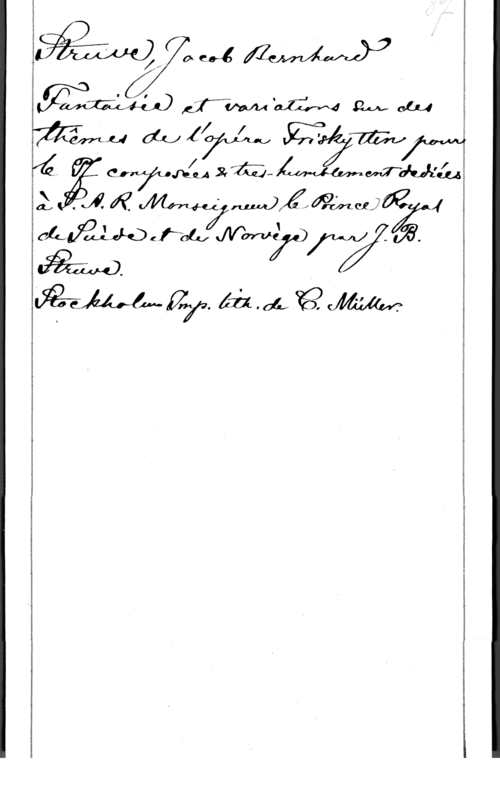 Struve, Jacob Bernhard
Fantaisie et variations sur des
thêmes de l'opéra Friskytten pour
le Pf composées & tres-humblement dediées
à S. A. R. Monseigneur le Prince Royal
de Suède et de Norvège par J. B.
Struve.
Stockholm Imp. lith. de C. Müller.